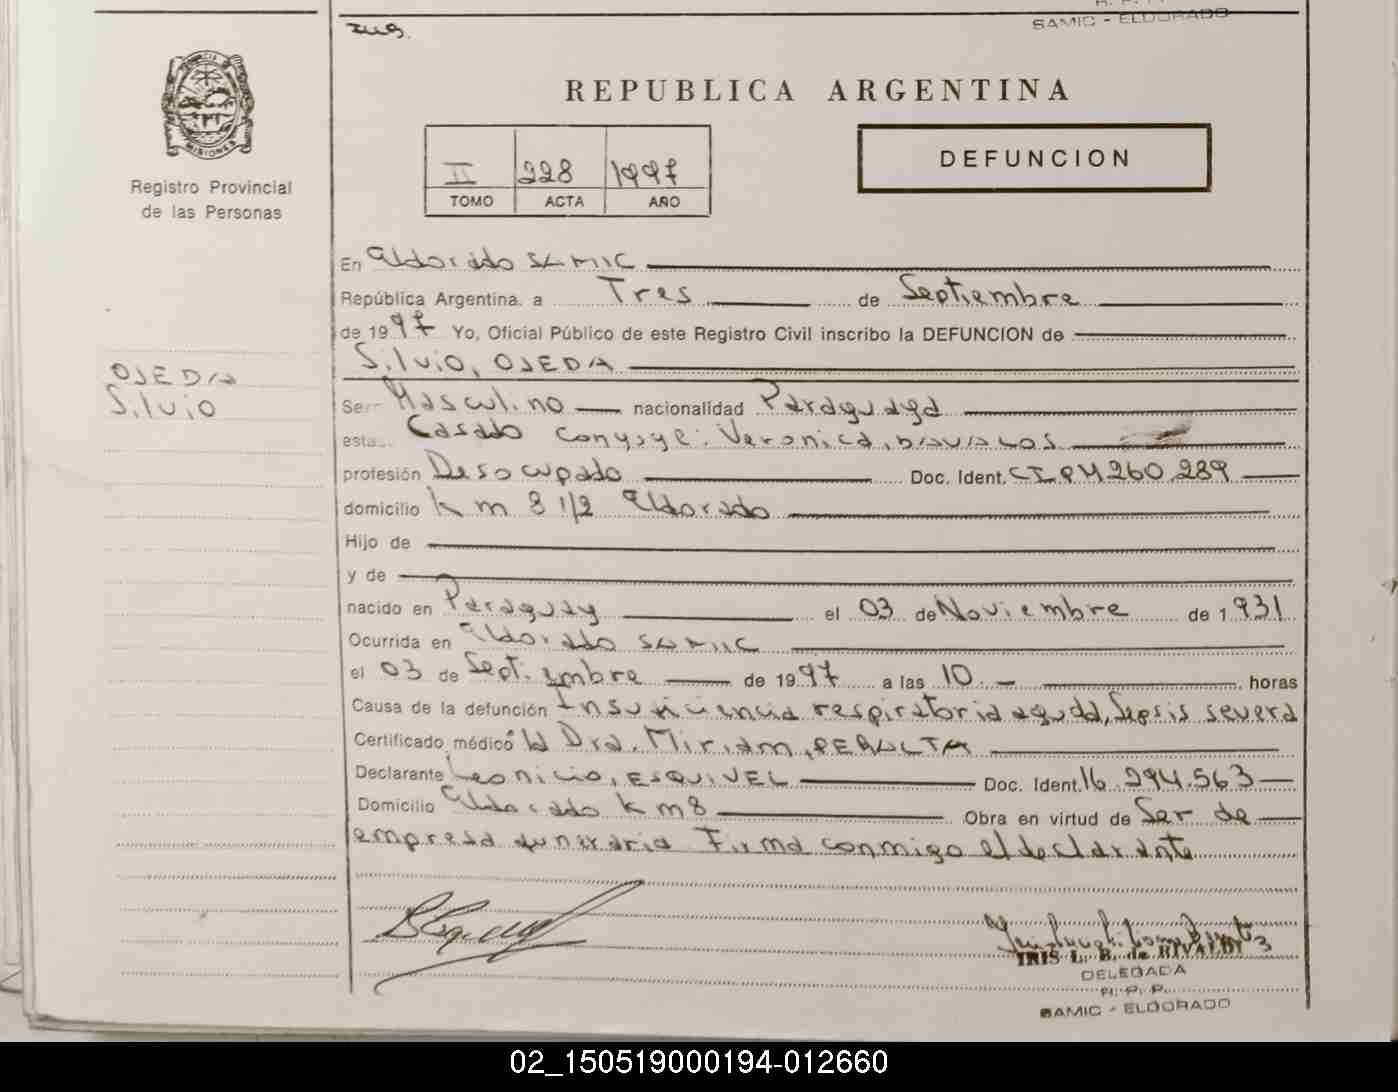 SAMIC - ELDORADO
REPUBLICA ARGENTINA
PROVINCIA DE
MISIONES
Registro Provincial
de las Personas
II 228 1997
TOMO ACTA AÑO
DEFUNCION
En Eldorado SAMIC
República Argentina, a Tres de Septiembre
de 1997 Yo, Oficial Público de este Registro Civil inscribo la DEFUNCION de
Silvio, OJEDA
OJEDA
Silvio
Sexo Masculino nacionalidad Paraguaya
esta Casado Conyuge: Veronica, DAVALOS
profesión Desocupado Doc. Ident. CIPM260.289
domicilio Km 8 1/2 Eldorado
Hijo de
y de
nacido en Paraguay el 03 de Noviembre de 1.931
Ocurrida en Eldorado SAMIC
el 03 de Septiembre de 1997 a las 10.- horas
Causa de la defunción Insuficiencia respiratoria aguda, Sepsis severa
Certificado médico la Dra. Miriam, PERALTA
Declarante Leonicio, ESQUIVEL Doc. Ident. 16.294.563
Domicilio Eldorado Km 8 Obra en virtud de Ser de
empresa funeraria Firma conmigo el declarante
IRIS L. B. de RIVALDI
DELEGADA
R. P. P.
SAMIC - ELDORADO
02_150519000194-012660